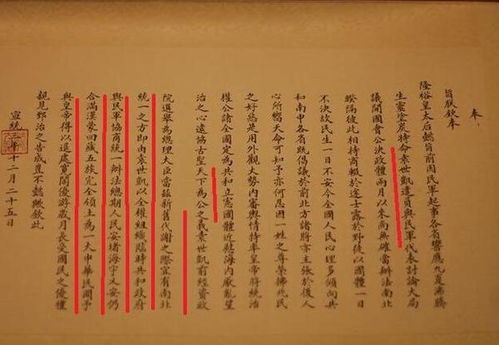 奉
旨朕欽奉
隆裕皇太后懿旨前因民軍起事各省響應九夏沸騰
生靈塗炭特命袁世凱遣員與民軍代表討論大局
議開國會公決政體兩月以來尚無確當辦法南北
暌隔彼此相持商輟於途士露於野徒以國體一日
不決故民生一日不安今全國人民心理多傾向共
和南中各省既倡議於前北方諸將亦主張於後人
心所嚮天命可知予亦何忍因一姓之尊榮拂兆民
之好惡是用外觀大勢內審輿情特率皇帝將統治
權公諸全國定為共和立憲國體近慰海內厭亂望
治之心遠協古聖天下為公之義袁世凱前經資政
院選舉為總理大臣當茲新舊代謝之際宜有南北
統一之方即由袁世凱以全權組織臨時共和政府
與民軍協商統一辦法總期人民安堵海宇乂安仍
合滿漢蒙回藏五族完全領土為一大中華民國予
與皇帝得以退處寬閒優游歲月長受國民之優禮
親見郅治之告成豈不懿歟欽此
宣統三年十二月二十五日